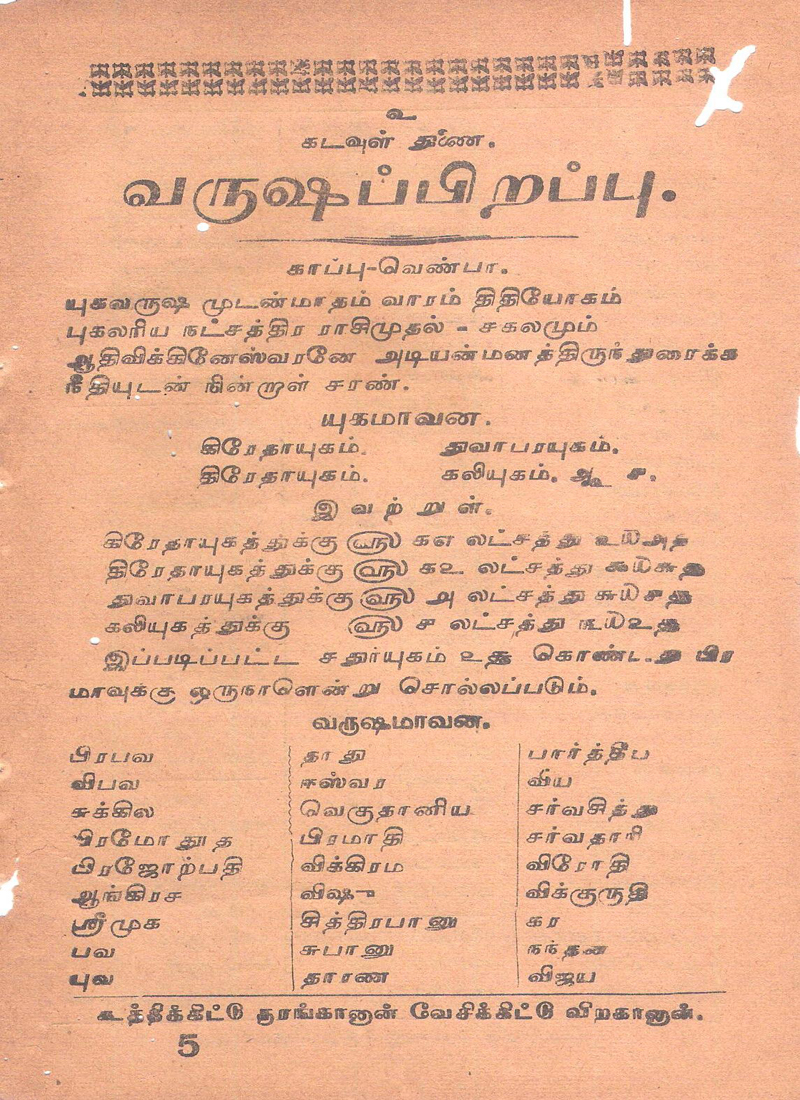 உ
கடவுள் துணை.
வருஷப்பிறப்பு.
காப்பு-வெண்பா.
யுகவருஷ முடன்மாதம் வாரம் திதியோகம்
புகலரிய நட்சத்திர ராசிமுதல் - சகலமும்
ஆதிவிக்கினேஸ்வரனே அடியன்மனத்திருந்துரைக்க
நீதியுடன் நின்றாள் சரண்.
யுகமாவன.
கிரேதாயுகம். துவாபரயுகம்.
திரேதாயுகம். கலியுகம். ஆக ௪.
இவற்றுள்.
கிரேதாயுகத்துக்கு ௵ ௧௭ லட்சத்து ௨௰௮த
திரேதாயுகத்துக்கு ௵ ௧௨ லட்சத்து ௯௰௬த
துவாபரயுகத்துக்கு ௵ ௮ லட்சத்து ௬௰௪த
கலியுகத்துக்கு ௵ ௪ லட்சத்து ௩௰௨த
இப்படிப்பட்ட சதுர்யுகம் ௨த கொண்டது பிர
மாவுக்கு ஒருநாளென்று சொல்லப்படும்.
வருஷமாவன.
பிரபவ தாது பார்த்தீப
விபவ ஈஸ்வர விய
சுக்கில வெகுதானிய சர்வசித்து
பிரமோதூத பிரமாதி சர்வதாரி
பிரஜோற்பதி விக்கிரம விரோதி
ஆங்கிரச விஷு விக்குருதி
ஸ்ரீமுக சித்திரபானு கர
பவ சுபானு நந்தன
யுவ தாரண விஜய
கூத்திக்கிட்டு தரங்கானான் வேசிக்கிட்டு விறகானான்.
5